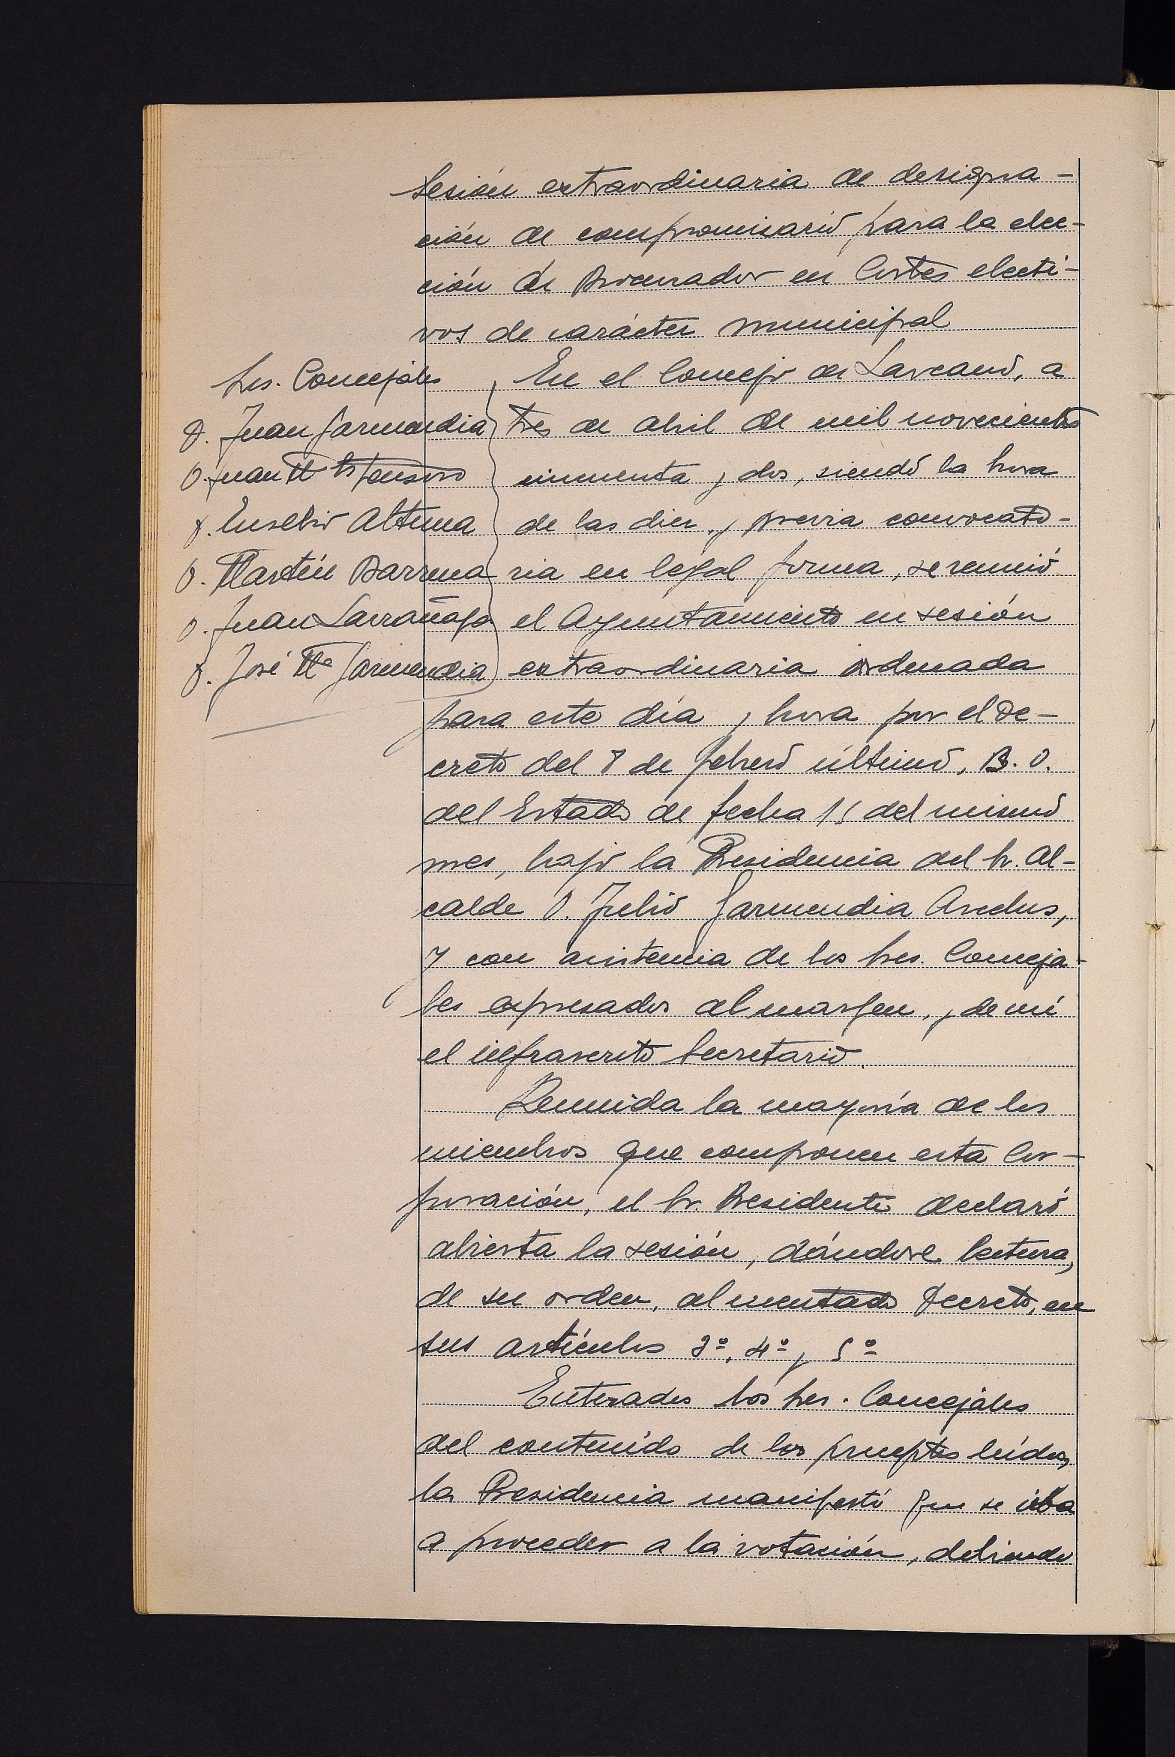 Sesión extraordinaria de designa-
ción de compromisario para la elec-
ción de Procurador en Cortes electi-
vos de carácter municipal
Sres. Concejales
D. Juan Garmendia
D. Juan Mª
D. Eusebio Altuna
D. Martín Barrena
D. Juan Larrañaga
D. José Mª Garmendia
En el Concejo de Lazcano, a
tres de abril de mil novecientos
cincuenta y dos, siendo la hora
de las diez, y previa convocato-
ria en legal forma, se reunió
el Ayuntamiento en sesión
extraordinaria ordenada
para este día y hora por el De-
creto del 8 de febrero último, B. O.
del Estado de fecha 11 del mismo
mes, bajo la Presidencia del Sr. Al-
calde D. Julio Garmendia
y con asistencia de los Sres. Conceja-
les expresados al margen, y de mí
el infrascrito Secretario.
Reunida la mayoría de los
miembros que componen esta Cor-
poración, el Sr. Presidente declaró
abierta la sesión, dándose lectura,
de su orden, al mentado Decreto, en
sus artículos 3º, 4º y 5º
Enterados los Sres. Concejales
del contenido de los preceptos leídos,
la Presidencia manifestó que se iba
a proceder a la votación, debiendo